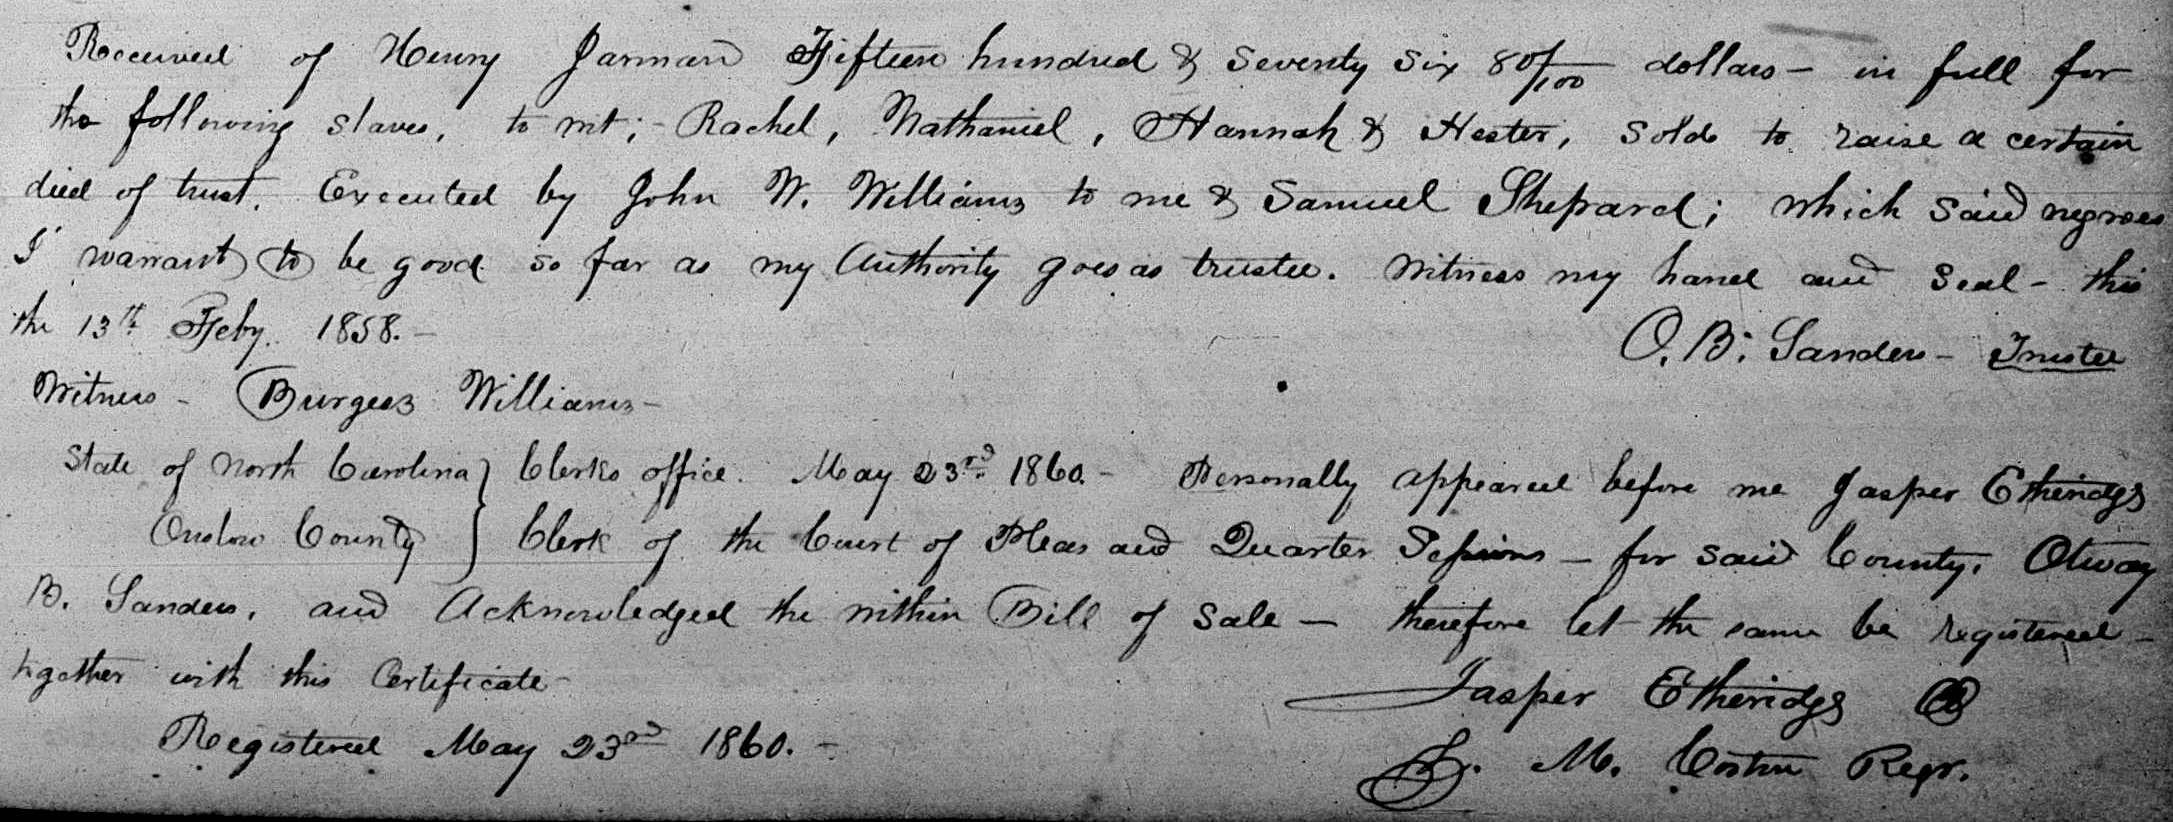 Received of Henry Jarman Fifteen hundred & Seventy Six 80/100 dollars – in full for
the following slaves, to wit; – Rachel, Nathaniel, Hannah & Hester, Sold to raise a certain
died of trust. Executed by John W. Williams to me & Samuel Shepard; which said negroes
I warrant to be good so far as my Authority goes as trustee. Witness my hand and Seal – this
the 13th Feby. 1858. –
O. B. Sanders – Trustee
Witness – Burgess Williams –
State of North Carolina } Clerks office. May 23rd 1860. – Personally appeared before me Jasper Etheridge
Onslow County } Clerk of the Court of Pleas and Quarter Sessions – for said County, Otway
B. Sanders, and Acknowledged the within Bill of Sale – therefore let the same be registered –
together with this Certificate –
Jasper Etheridge
Registered May 23rd 1860. –
M. Costin Regr.